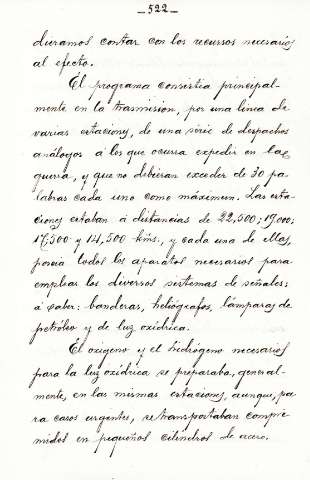 —522—
duramos contar con los recursos necesarios
al efecto.
El programa consistia principal-
mente en la trasmision, por una linea de
varias estaciones, de una serie de despachos
análogos á los que ocurra expedir en la
guerra, y que no debieran exceder de 30 pa-
labras cada uno como máximun. Las esta-
ciones estaban á distancias de 22,500; 19,000;
17,500 y 14,500 kms., y cada una de ellas,
poseia todos los aparatos necesarios para
emplear los diversos sistemas de señales:
á saber: banderas, heliógrafos, lámparas de
petróleo y de luz oxidrica.
El oxigeno y el hidrógeno necesarios
para la luz oxidrica se preparaba, general-
mente, en las mismas estaciones, aunque, pa-
ra casos urgentes, se transportaban compri-
midos en pequeños cilindros de acero.